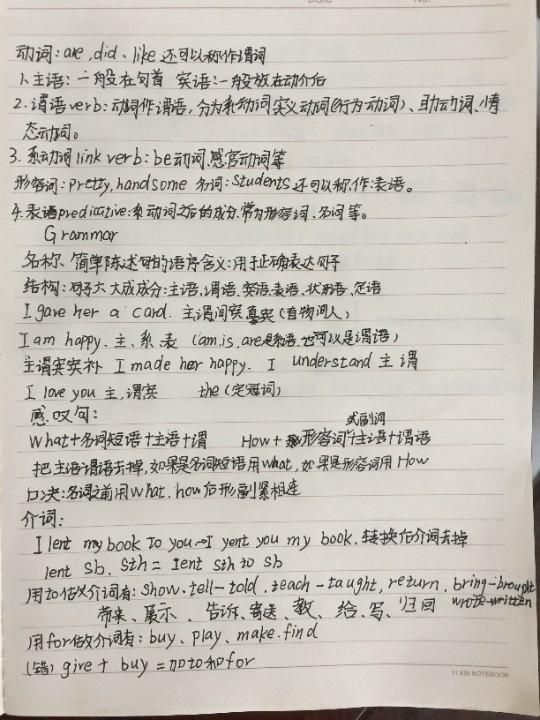 动词: are, did、like 还可以称作谓词
1、主语: 一般在句首 宾语:一般放在动介后
2. 谓语verb: 动词作谓语, 分为系动词实义动词(行为动词)、助动词、情
态动词。
3. 系动词link verb: be动词.感官动词等
形容词: pretty, handsome 名词: students 还可以称作:表语。
4. 表语predicative: 系动词之后的成分, 常为形容词、名词等。
Grammar
名称、简单陈述句的语序含义:用于正确表达句子
结构: 句子六大成成分: 主语, 谓语, 宾语, 表语, 状语, 定语
I gave her a card. 主谓间宾直宾 (直物间人)
I am happy. 主、系、表 (am, is, are是系语, 也可以是谓语)
主谓宾宾补 I made her happy. I understand 主谓
I love you 主, 谓宾 the (定冠词)
感叹句:
或副词
What+名词短语+主语+谓 How + 形容词+主语+谓语
把主语谓语去掉, 如果是名词短语用what, 如果是形容词用How
口决: 名词之前用what, how后形副紧相连
介词:
I lent my book to you→I yent you my book. 转换后介词去掉
lent sb. sth = lent sth to sb
用to做介词有: show. tell-told. teach-taught, return. bring-brought
带来、展示、告诉、寄送、教、给、写、归回 wrote-written
用for做介词有: buy、play、make. find
(错) give + buy = no to no for
YI XIN NOTEBOOK